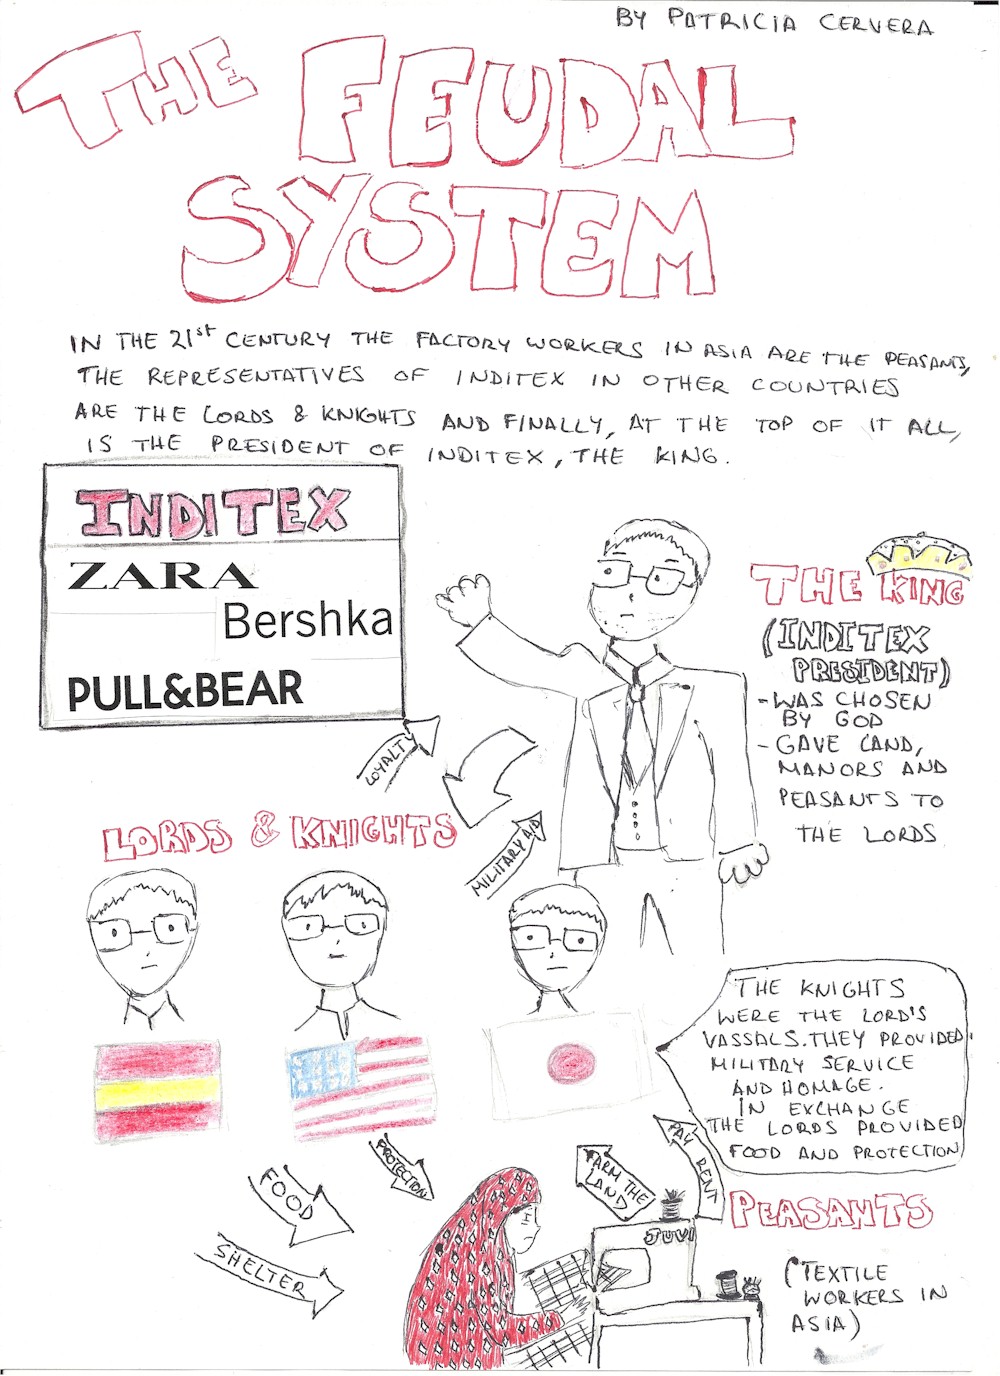 BY PATRICIA CERVERA
THE FEUDAL
SYSTEM
IN THE 21st CENTURY THE FACTORY WORKERS IN ASIA ARE THE PEASANTS,
THE REPRESENTATIVES OF INDITEX IN OTHER COUNTRIES
ARE THE LORDS & KNIGHTS AND FINALLY, AT THE TOP OF IT ALL,
IS THE PRESIDENT OF INDITEX, THE KING.
INDITEX
ZARA
Bershka
PULL&BEAR
THE KING
(INDITEX
PRESIDENT)
- WAS CHOSEN
BY GOD
- GAVE LAND,
MANORS AND
PEASANTS TO
THE LORDS
LOYALTY
MILITARY AID
LORDS & KNIGHTS
THE KNIGHTS
WERE THE LORD'S
VASSALS. THEY PROVIDED
MILITARY SERVICE
AND HOMAGE.
IN EXCHANGE
THE LORDS PROVIDED
FOOD AND PROTECTION
PROTECTION
FOOD
SHELTER
FARM THE
LAND
PAY RENT
JUVI
PEASANTS
(TEXTILE
WORKERS IN
ASIA)